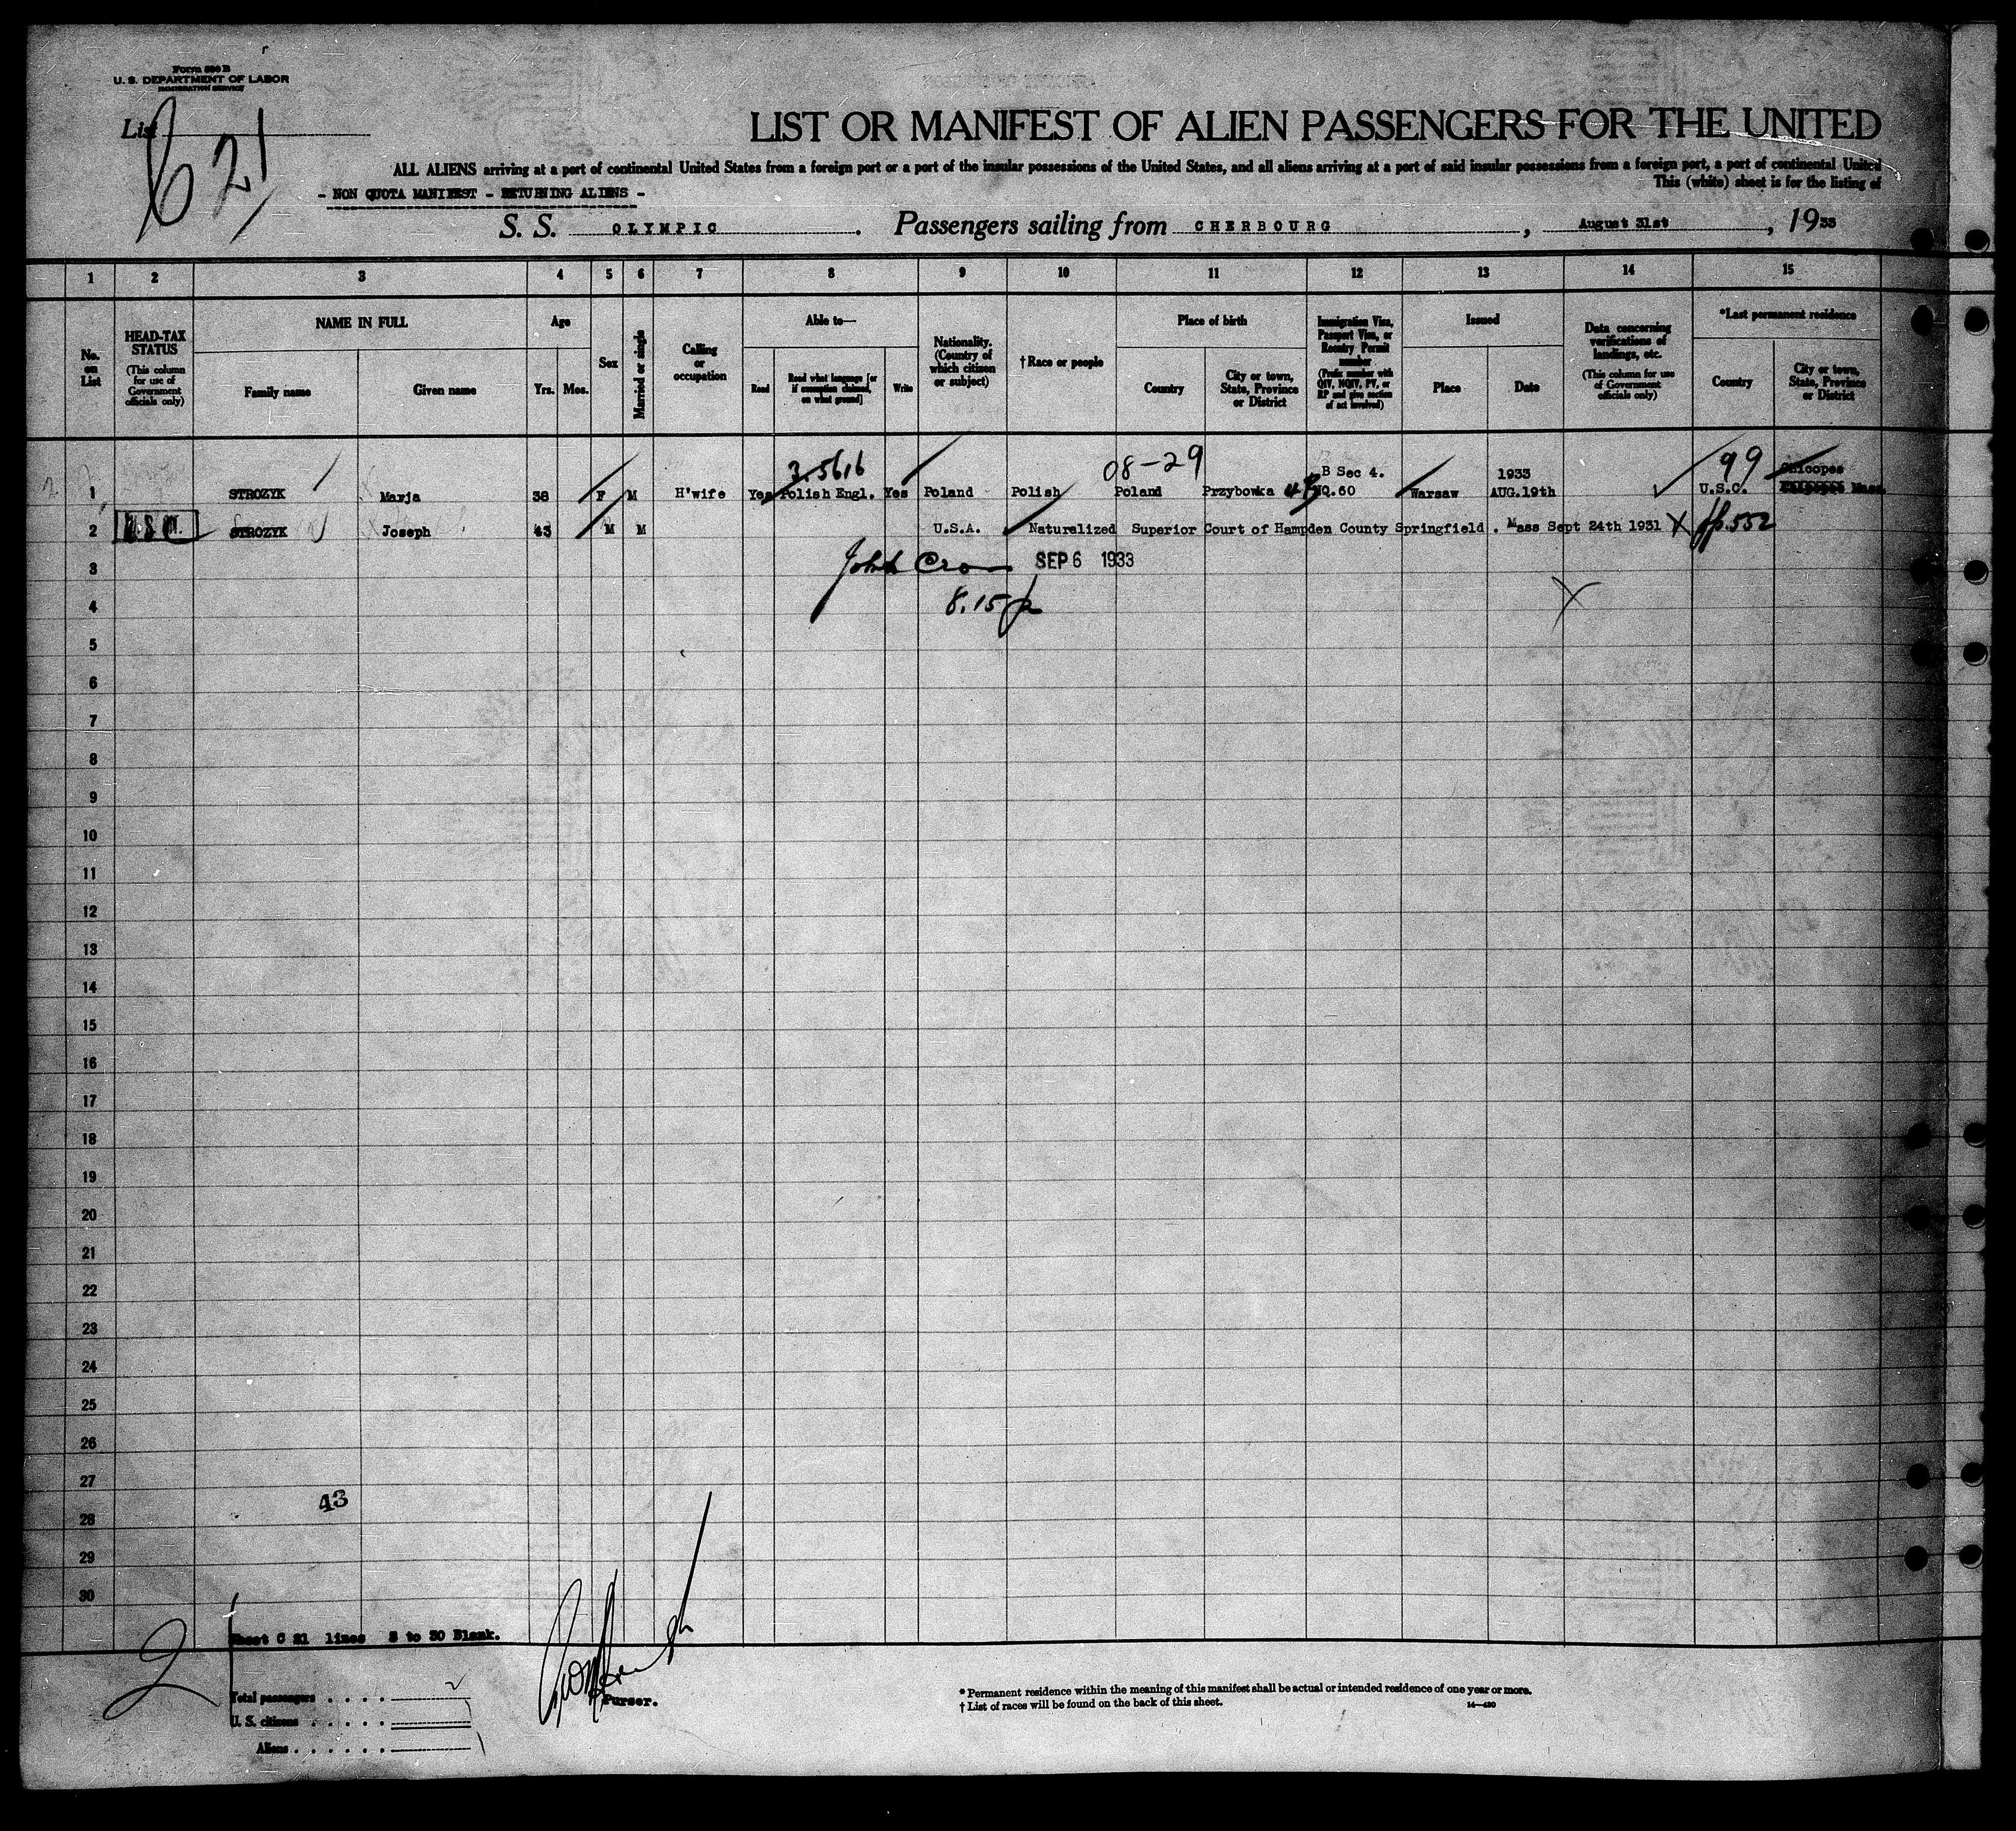 Form 630 B
U. S. DEPARTMENT OF LABOR
IMMIGRATION SERVICE
List
C 21
LIST OR MANIFEST OF ALIEN PASSENGERS FOR THE UNITED
ALL ALIENS arriving at a port of continental United States from a foreign port or a port of the insular possessions of the United States, and all aliens arriving at a port of said insular possessions from a foreign port, a port of continental United
This (white) sheet is for the listing of
- NON QUOTA MANIFEST - RETURNING ALIENS -
S. S. OLYMPIC. Passengers sailing from CHERBOURG, August 31st, 1933
1 2 3 4 5 6 7 8 9 10 11 12 13 14 15
No. on List
HEAD-TAX STATUS (This column for use of Government officials only)
NAME IN FULL
Family name
Given name
Age
Yrs. Mos.
Sex
Married or single
Calling or occupation
Able to—
Read
Read what language [or if exemption claimed, on what ground]
Write
Nationality. (Country of which citizen or subject)
†Race or people
Place of birth
Country
City or town, State, Province or District
Immigration Visa, Passport Visa, or Reentry Permit number (Prefix number with QIV, NQIV, PV, or RP and give section of act involved)
Issued
Place
Date
Data concerning verifications of landings, etc. (This column for use of Government officials only)
*Last permanent residence
Country
City or town, State, Province or District
3.5616 08-29 B Sec 4. 1933 99 Chicopee
1 STROZYK Marja 38 F M H'wife Yes Polish Engl. Yes Poland Polish Poland Przybowka NQ.60 Warsaw AUG.19th U.S.O. Mass.
2 STROZYK Joseph 43 M M U.S.A. Naturalized Superior Court of Hampden County Springfield . Mass Sept 24th 1931 X 552
3 John SEP 6 1933
4 8.15 p X
5
6
7
8
9
10
11
12
13
14
15
16
17
18
19
20
21
22
23
24
25
26
27
43
28
29
30
2
Sheet C 21 lines 3 to 30 Blank.
Total passengers . . . .
U. S. citizens . . . . .
Aliens . . . . . .
Purser.
* Permanent residence within the meaning of this manifest shall be actual or intended residence of one year or more.
† List of races will be found on the back of this sheet.
14—430